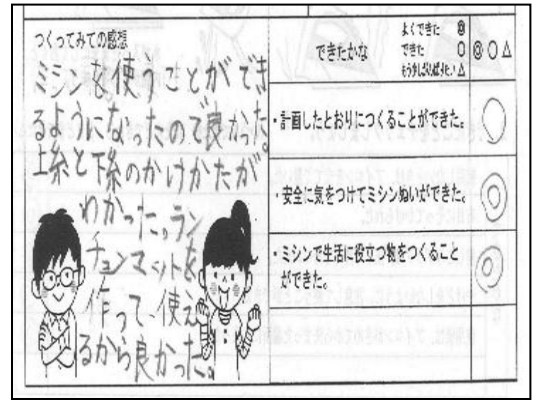 つくってみての感想
ミシンを使うことができ
るようになったので良かった。
上糸と下糸のかけかたが
わかった。ラン
チョンマットを
作って、使え
るから良かった。
できたかな
よくできた ◎
できた ○
もう少しがんばりたい △
◎○△
・計画したとおりにつくることができた。
○
・安全に気をつけてミシンぬいができた。
◎
・ミシンで生活に役立つ物をつくること
ができた。
◎